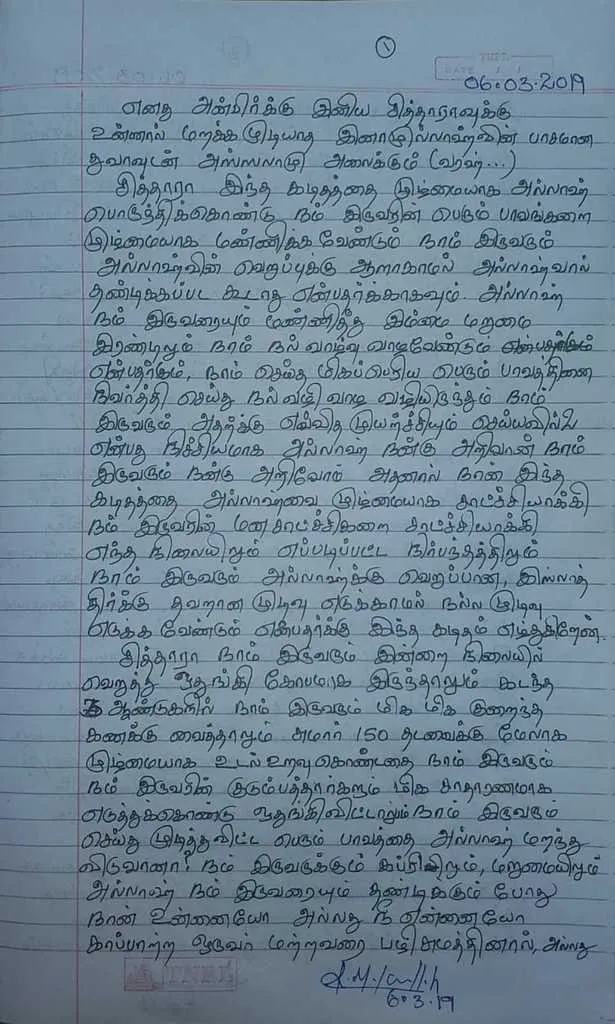 ①
DATE
06.03.2019
எனது அன்பிர்க்கு இனிய சித்தாராவுக்கு
உன்னால் மறக்க முடியாத இனாமுல்லாஹ்வின் பாசமான
துவாவுடன் அஸ்ஸலாமு அலைக்கும் (வரஹ்...)
சித்தாரா இந்த கடிதத்தை முழ்மையாக அல்லாஹ்
பொருந்திக்கொண்டு நம் இருவரின் பெரும் பாவங்களை
முழ்மையாக மண்ணிக்க வேண்டும் நாம் இருவரும்
அல்லாஹ்வின் வெறுப்புக்கு ஆளாகாமல் அல்லாஹ்வால்
தண்டிக்கப்பட கூடாது என்பதர்க்காகவும். அல்லாஹ்
நம் இருவரையும் மண்ணித்து இம்மை மறுமை
இரண்டிலும் நாம் நல் வாழ்வு வாழவேண்டும்
என்பதர்கும், நாம் செய்த மிகப்பெரிய பெரும் பாவத்தினை
நிவர்த்தி செய்து நல் வழி வாழ வழியிருந்தும் நாம்
இருவரும் அதர்க்கு எவ்வித முயற்ச்சியும் செய்யவில்லை
என்பது நிச்சியமாக அல்லாஹ் நன்கு அறிவான் நாம்
இருவரும் நன்கு அறிவோம் அதனால் நான் இந்த
கடிதத்தை அல்லாஹ்வை முழ்மையாக சாட்ச்சியாக்கி
நம் இருவரின் மனசாட்ச்சிகளை சாட்ச்சியாக்கி
எந்த நிலையிலும் எப்படிப்பட்ட நிர்பந்தத்திலும்
நாம் இருவரும் அல்லாஹ்க்கு வெறுப்பான, இஸ்லாத்
திர்க்கு தவறான முடிவு எடுக்காமல் நல்ல முடிவு
எடுக்க வேண்டும் என்பதர்க்கு இந்த கடிதம் எழுதுகிறேன்.
சித்தாரா நாம் இருவரும் இன்றை நிலையில்
வெறுத்து ஒதுங்கி கோபமாக இருந்தாலும் கடந்த
ஆண்டுகளில் நாம் இருவரும் மிக மிக குறைந்த
கணக்கு வைத்தாலும் சுமார் 150 தடவைக்கு மேலாக
முழ்மையாக உடல் உறவு கொண்டதை நாம் இருவரும்
நம் இருவரின் குடும்பத்தார்களும் மிக சாதாரணமாக
எடுத்துக்கொண்டு ஒதுங்கிவிட்டாலும் நாம் இருவரும்
செய்து முடித்துவிட்ட பெரும் பாவத்தை அல்லாஹ் மறந்து
விடுவானா? நம் இருவருக்கும் கப்ரிலும், மறுமையிலும்
அல்லாஹ் நம் இருவரையும் தண்டிக்கும் போது
நான் உன்னையோ அல்லது நீ என்னையோ
காப்பாற்ற ஒருவர் மற்றவரை பழி சுமத்தினால், அல்லது
6.3.19